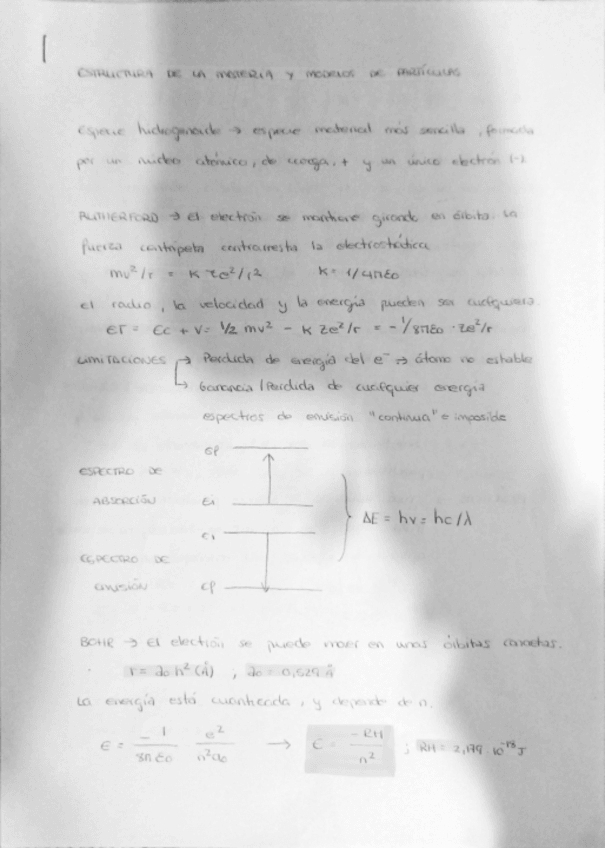 1
ESTRUCTURA DE LA MATERIA Y MODELOS DE PARTÍCULAS
Especie hidrogenoide → especie material más sencilla, formada
por un núcleo atómico, de carga + y un único electrón (-).
RUTHERFORD → El electrón se mantiene girando en órbita. La
fuerza centrípeta contrarresta la electrostática
mv²/r = K ze²/r² K = 1/4πε0
el radio, la velocidad y la energía pueden ser cualquiera
ET = Ec + V = 1/2 mv² - K Ze²/r = -1/8πε0 · Ze²/r
LIMITACIONES → Perdida de energía del e⁻ → átomo no estable
→ Ganancia/Perdida de cualquier energía
espectros de emisión "continua" e imposible
Ef
ESPECTRO DE
ABSORCIÓN Ei
ΔE = hν = hc/λ
Ei
ESPECTRO DE
EMISIÓN Ef
BOHR → El electrón se puede mover en unas órbitas concretas.
r = a0 n² (Å) ; a0 = 0,529 Å
La energía está cuantizada, y depende de n.
E = -1/8πε0 e²/n²a0 → E = -RH/n² ; RH = 2,179 · 10⁻¹⁸ J